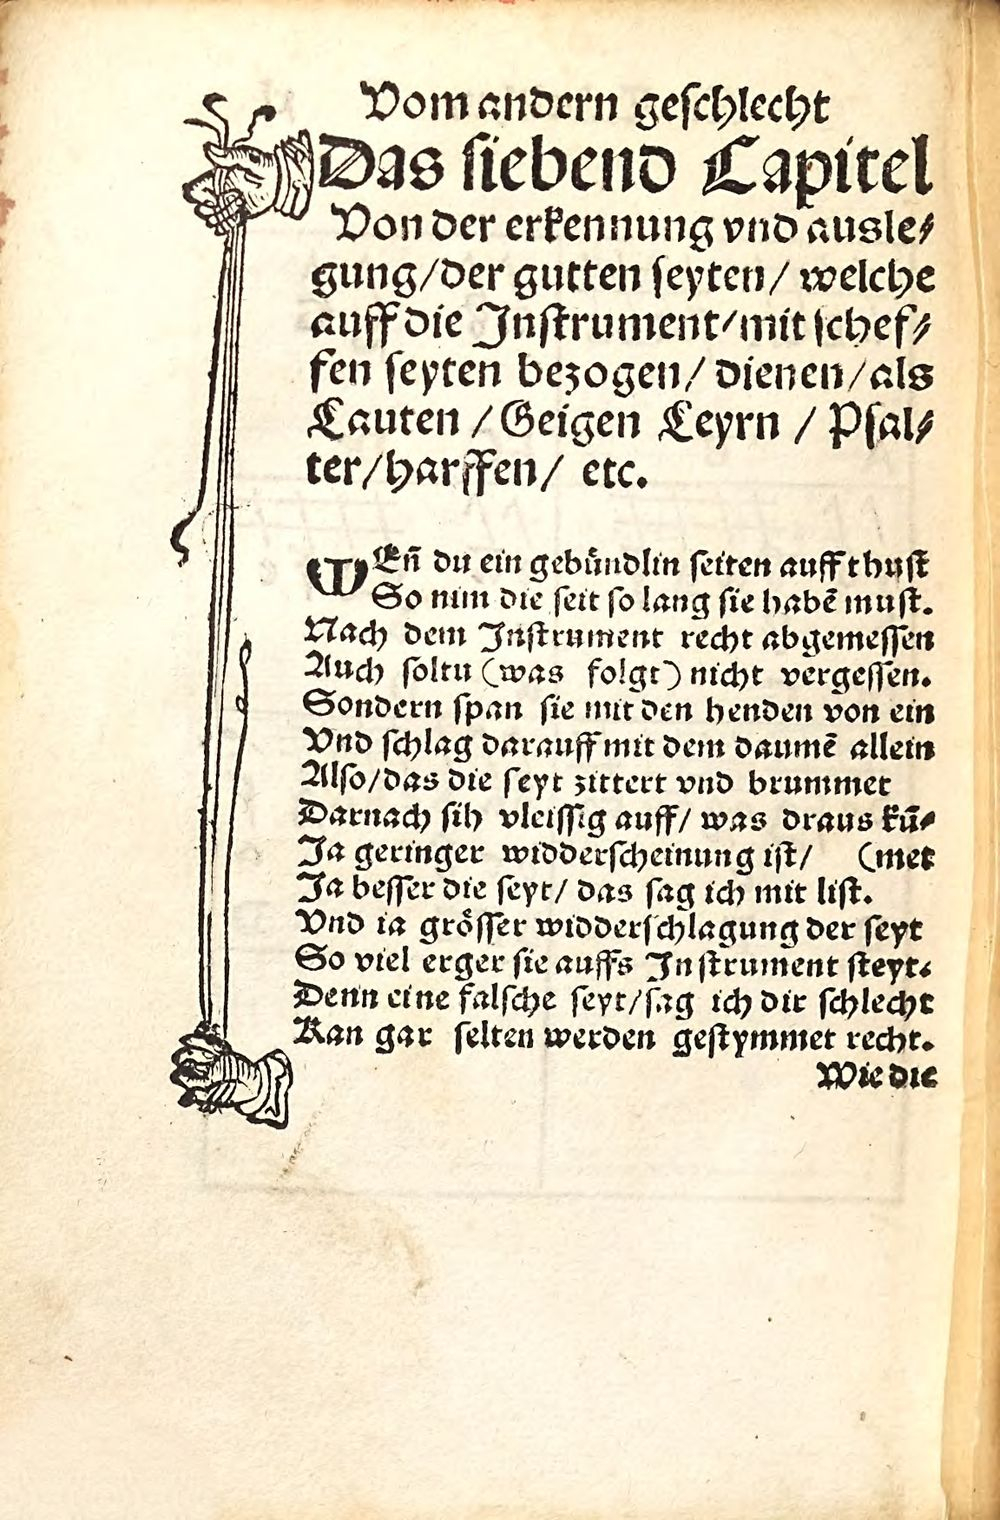 Vom andern geschlecht
Das siebend Capitel
Von der erkennung vnd ausle⸗
gung/der gutten seyten/ welche
auff die Instrument/mit schef⸗
fen seyten bezogen/ dienen/als
Lauten / Geigen Leyrn / Psal⸗
ter/harffen/ etc.
WEñ du ein gebündlin seiten auff thust
So nim die seit so lang sie habē must.
Nach dem Instrument recht abgemessen
Auch soltu (was folgt) nicht vergessen.
Sondern span sie mit den henden von ein
Vnd schlag darauff mit dem daumē allein
Also/das die seyt zittert vnd brummet
Darnach sih vleissig auff/ was draus kū⸗
Ja geringer widderscheinung ist/ (met
Ja besser die seyt/ das sag ich mit list.
Vnd ia grösser widderschlagung der seyt
So viel erger sie auffs Instrument steyt.
Denn eine falsche seyt/sag ich dir schlecht
Kan gar selten werden gestymmet recht.
Wie die